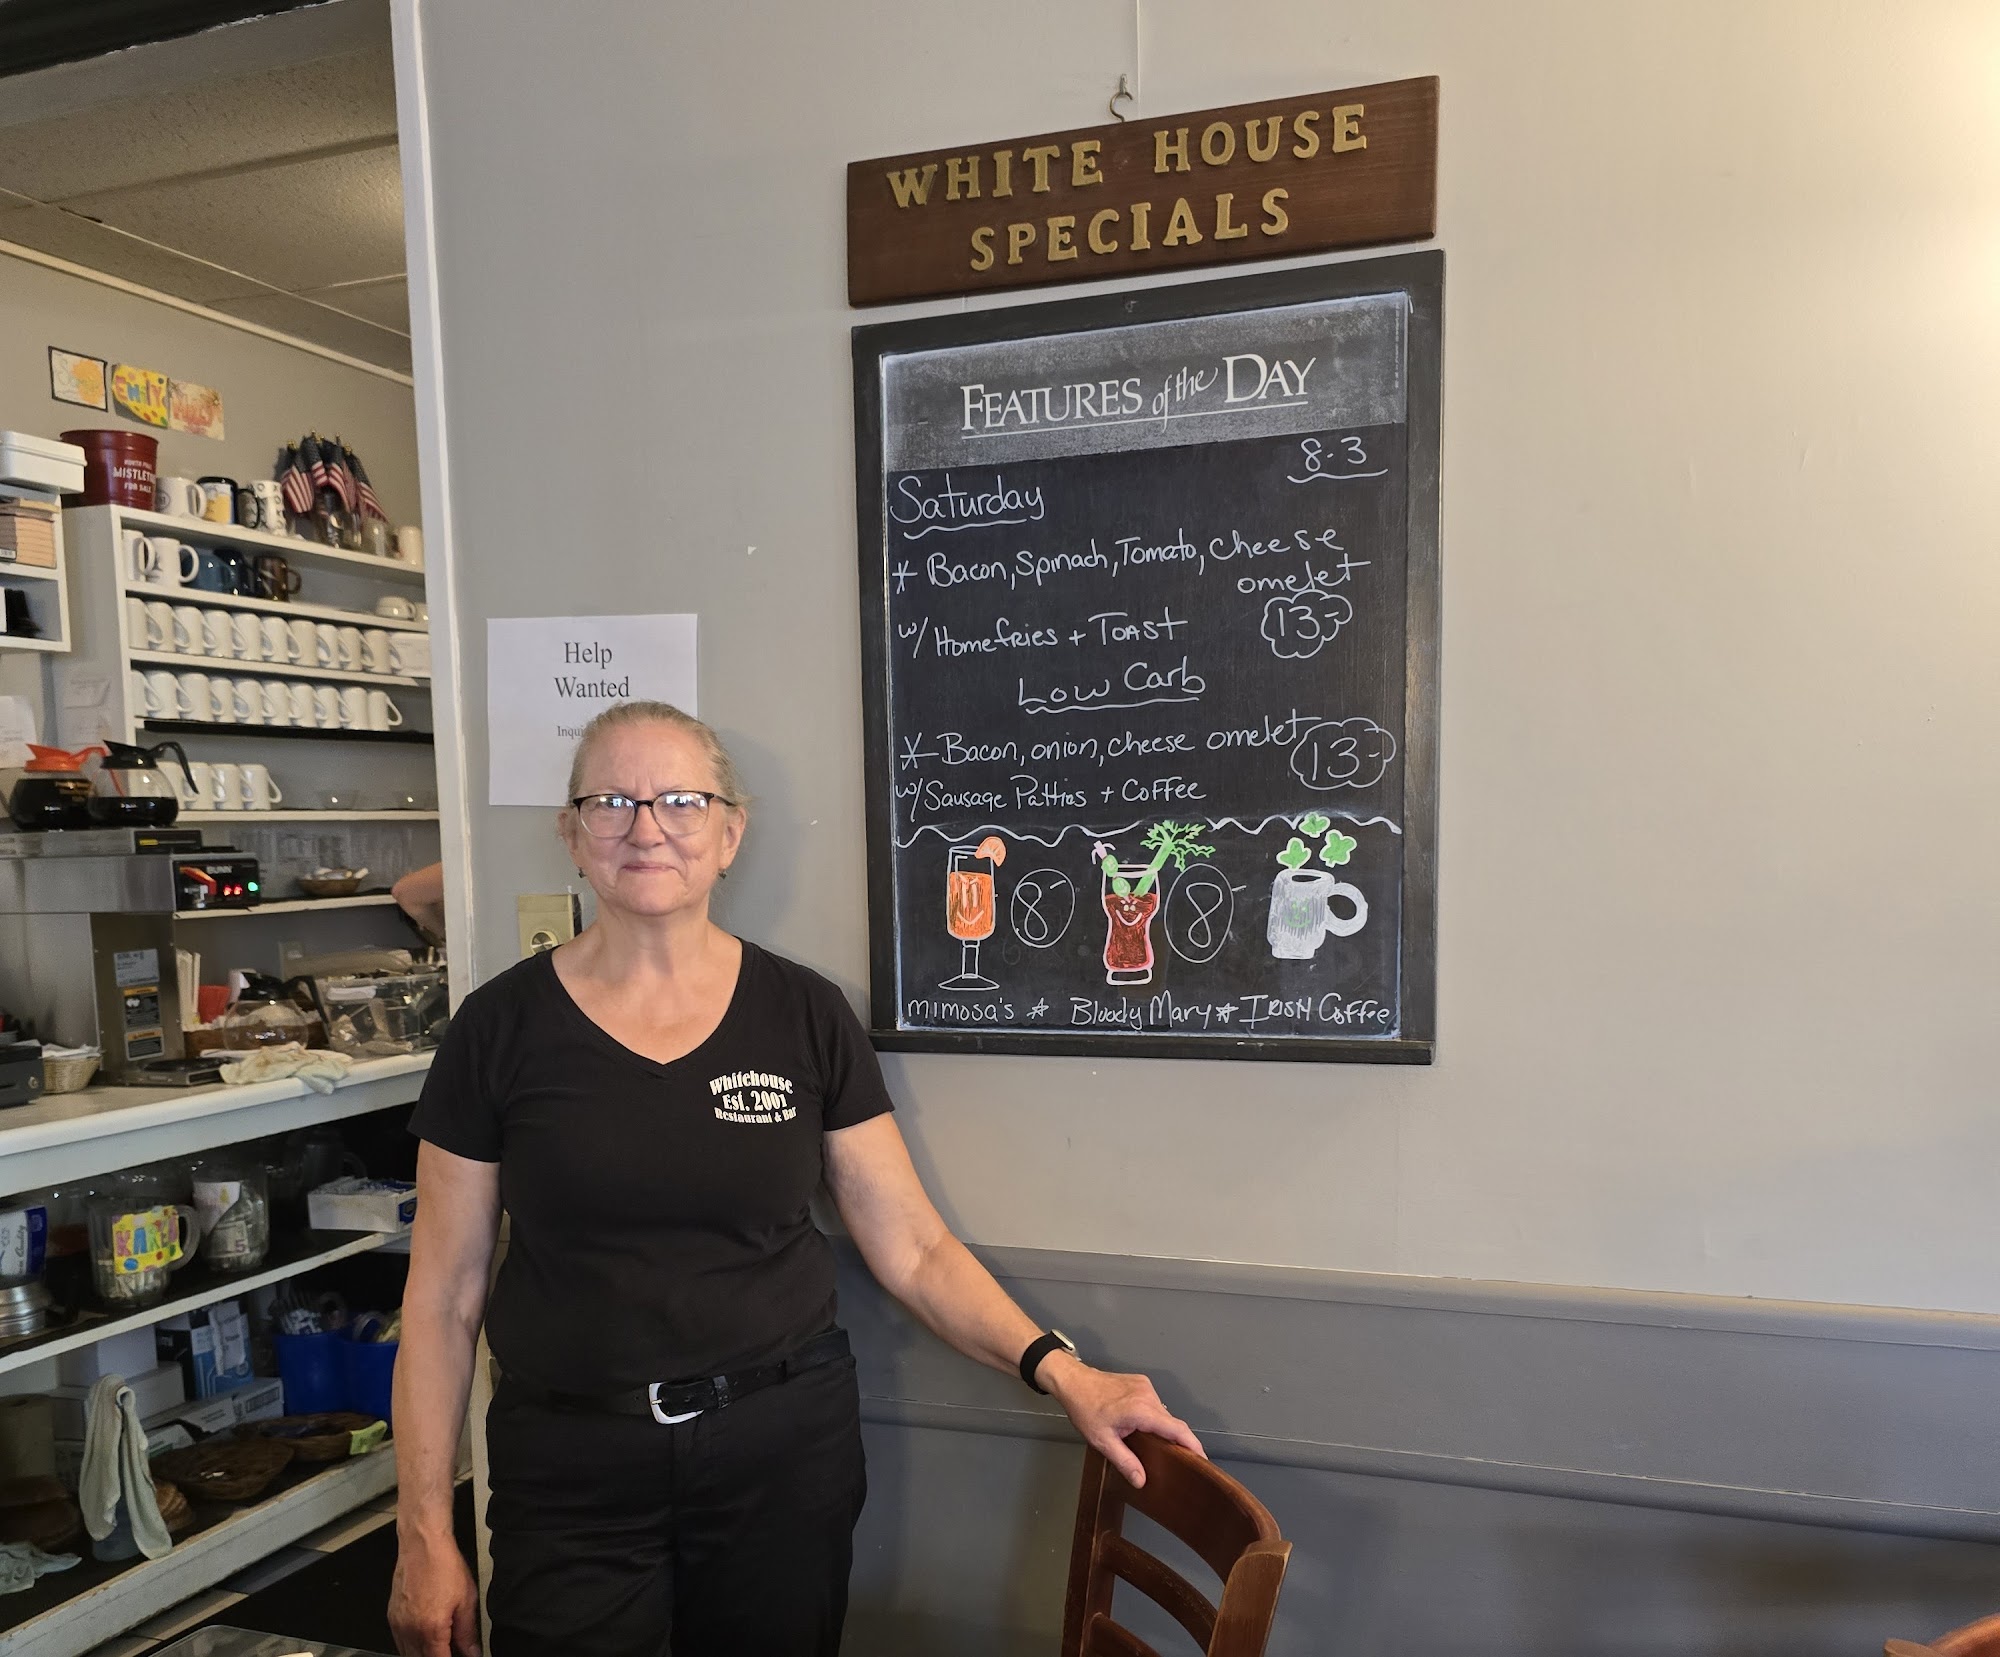 WHITE HOUSE
SPECIALS
FEATURES of the DAY
8-3
Saturday
* Bacon, Spinach, Tomato, cheese
omelet
13-
w/ Homefries + TOAST
Low Carb
* Bacon, onion, cheese omelet
13-
w/ Sausage Patties + Coffee
8-
8-
mimosa's * Bloody Mary * IRISH Coffee
Help
Wanted
Inqui
Whitehouse
Est. 2001
Restaurant & Bar
EmilY
MISTLETOE
FOR SALE
BUNN
KAREN